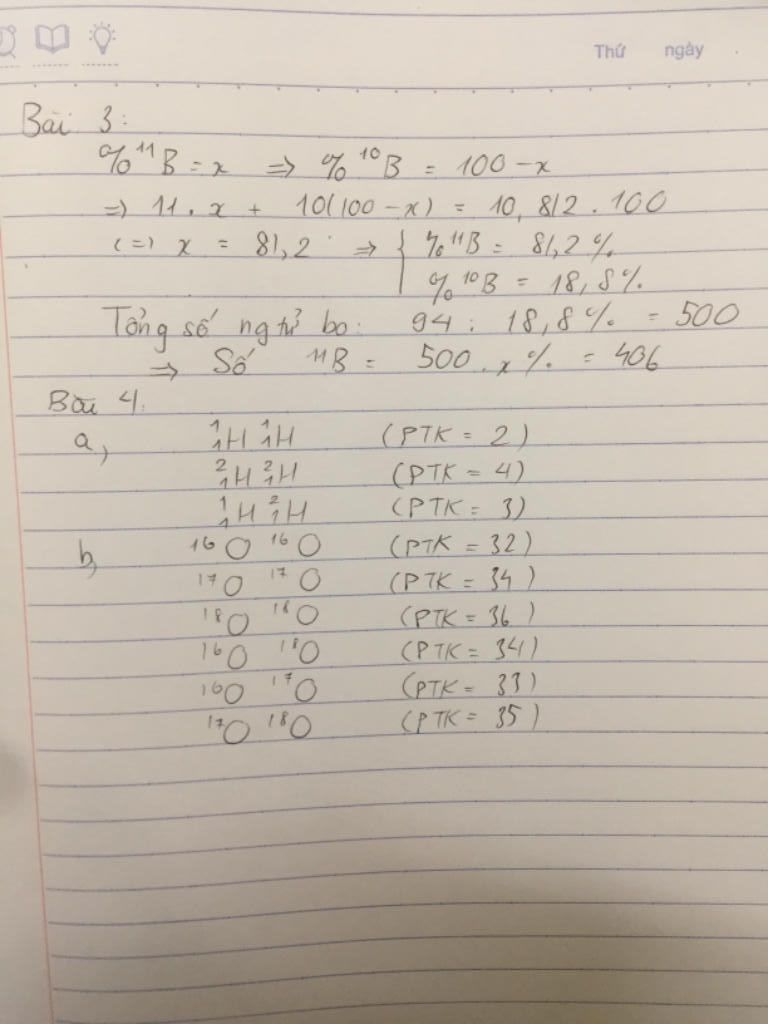 Thứ ngày
Bài 3:
% ¹¹B = x => % ¹⁰B = 100 - x
=> 11 . x + 10(100 - x) = 10,812 . 100
(=) x = 81,2 => { % ¹¹B = 81,2 %
% ¹⁰B = 18,8 %
Tổng số ng tử bo: 94 : 18,8 % = 500
=> Số ¹¹B = 500 . x % = 406
Bài 4.
a, ¹₁H ¹₁H (PTK = 2)
²₁H ²₁H (PTK = 4)
¹₁H ²₁H (PTK = 3)
b, ¹⁶O ¹⁶O (PTK = 32)
¹⁷O ¹⁷O (PTK = 34)
¹⁸O ¹⁸O (PTK = 36)
¹⁶O ¹⁸O (PTK = 34)
¹⁶O ¹⁷O (PTK = 33)
¹⁷O ¹⁸O (PTK = 35)